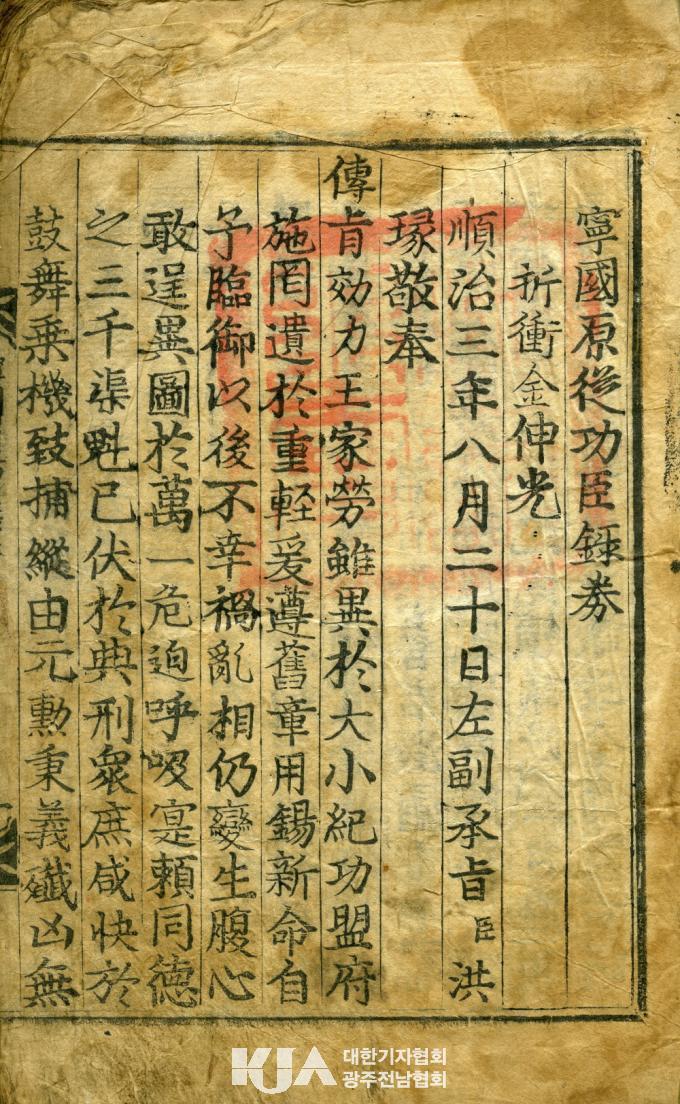 寧國原從功臣錄券
折衝金伸光
順治三年八月二十日左副承旨臣洪
瑑敬奉
傳旨効力王家勞雖異於大小紀功盟府
施罔遺於重輕爰遵舊章用錫新命自
予臨御以後不幸禍亂相仍變生腹心
敢逞異圖於萬一危迫呼吸寔賴同德
之三千渠魁已伏於典刑衆庶咸快於
鼓舞乘機致捕縱由元勳秉義殲凶無
KJA 대한기자협회
광주전남협회